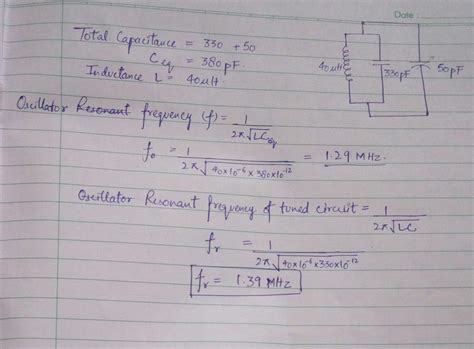 Date :
Total Capacitance = 330 + 50
Ceq = 380pF.
Inductance L = 40μH
40μH 330pF 50pF
Oscillator Resonant frequency (f) = 1 / 2π√LCeq
fo = 1 / 2π√40×10⁻⁶×380×10⁻¹² = 1.29 MHz.
Oscillator Resonant frequency of tuned circuit = 1 / 2π√LC
fr = 1 / 2π√40×10⁻⁶×330×10⁻¹²
fr = 1.39 MHz